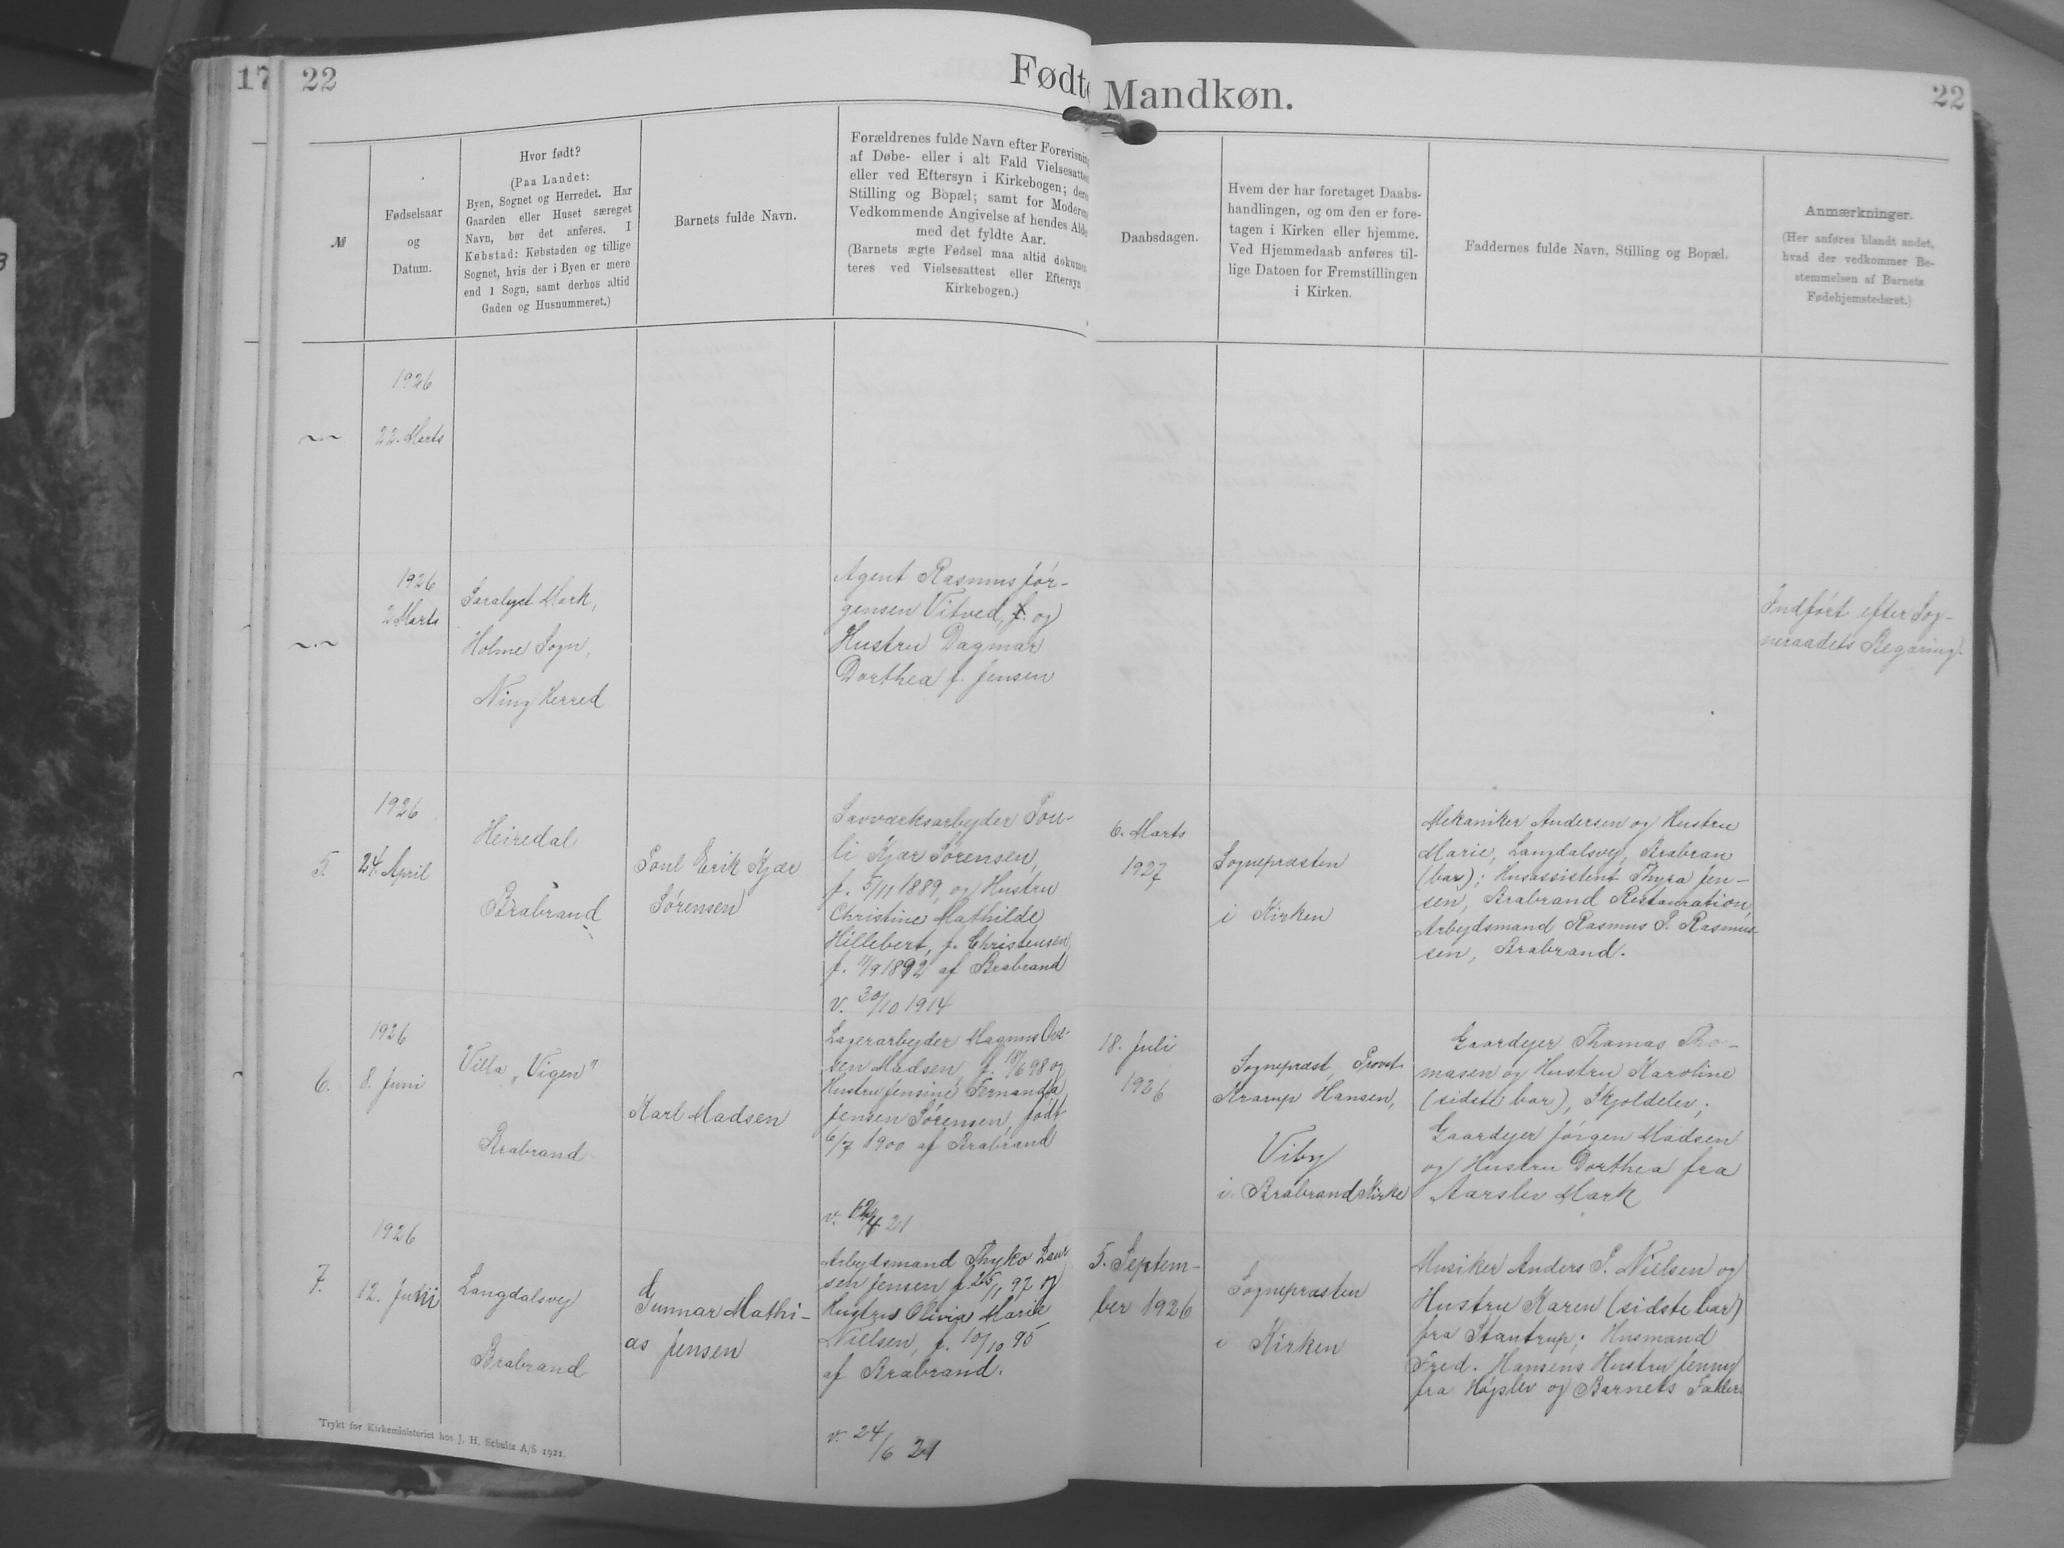 17
22
Fødte
Mandkøn.
22
№
Fødselsaar
og
Datum.
Hvor født?
(Paa Landet:
Byen, Sognet og Herredet. Har
Gaarden eller Huset særeget
Navn, bør det anføres. I
Købstad: Købstaden og tillige
Sognet, hvis der i Byen er mere
end 1 Sogn, samt derhos altid
Gaden og Husnummeret.)
Barnets fulde Navn.
Forældrenes fulde Navn efter Forevisning
af Døbe- eller i alt Fald Vielsesattest
eller ved Eftersyn i Kirkebogen; deres
Stilling og Bopæl; samt for Moderens
Vedkommende Angivelse af hendes Alder
med det fyldte Aar.
(Barnets ægte Fødsel maa altid dokumen
teres ved Vielsesattest eller Eftersyn
Kirkebogen.)
Daabsdagen.
Hvem der har foretaget Daabs-
handlingen, og om den er fore-
tagen i Kirken eller hjemme.
Ved Hjemmedaab anføres til-
lige Datoen for Fremstillingen
i Kirken.
Faddernes fulde Navn, Stilling og Bopæl.
Anmærkninger.
(Her anføres blandt andet,
hvad der vedkommer Be-
stemmelsen af Barnets
Fødehjemstedsret.)
1926
~.~
22. Marts
1926
2 Marts
~.~
Saralyst Mark,
Holme Sogn,
Ning Herred
Agent Rasmus Jør-
gensen Vitved, f. og
Hustru Dagmar
Dorthea f. Jensen
Indført efter Sog-
neraadets Begæring.
1926
5.
24. April
Heiredal
Brabrand
Poul Erik Kjær
Sørensen
Savværksarbejder Pou-
li Kjær Sørensen,
f. 5/11 1889, og Hustru
Christine Mathilde
Hillebert, f. Christensen,
f. 11/9 1892 af Brabrand
v. 30/10 1914
6. Marts
1927
Sognepræsten
i Kirken
Mekaniker Andersen og Hustru
Marie, Langdalsvej, Brabran
(bar); Husassistent Thyra Jen-
sen, Brabrand Restauration,
Arbejdsmand Rasmus P. Rasmus-
sen, Brabrand.
1926
6.
8. Juni
Villa „Vigen"
Brabrand
Karl Madsen
Lagerarbejder Magnus Ove-
sen Madsen, f. 18/6 98 og
Hustru Jensine Fernanda
Jensen Sørensen, født
6/7 1900 af Brabrand
21
18. Juli
1926
Sognepræst, Provst
Krarup Hansen,
Viby
i Brabrand Kirke
Gaardejer Thomas Tho-
masen og Hustru Karoline
(sidste bar), Skjoldelev;
Gaardejer Jörgen Madsen
og Hustru Dorthea fra
Aarslev Mark
1926
7.
12. Juni
Langdalsvej
Brabrand
Gunnar Mathi-
as Jensen
Arbejdsmand Thyko Laur
sen Jensen f. 25/1 97 og
Hustru Olivia Marie
Nielsen, f. 10/10 95
af Brabrand.
v. 24/6 21
5. Septem-
ber 1926
Sognepræsten
i Kirken
Musiker Anders P. Nielsen og
Hustru Karen (sidste bar)
fra Stautrup; Husmand
Fred. Hansens Hustru Jenny
fra Højslev og Barnets Fader.
Trykt for Kirkeministeriet hos J. H. Schultz A/S 1921.